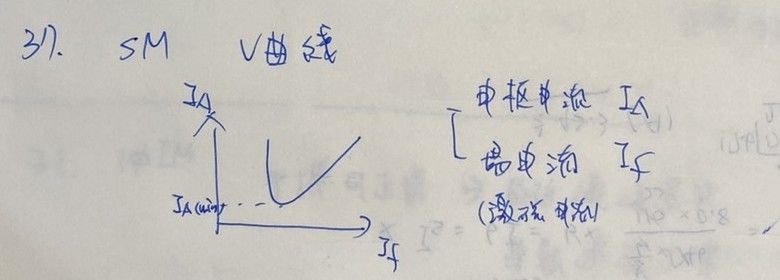 37. SM V曲线
I_A
电枢电流 I_A
场电流 I_f
(激磁电流)
I_A(min)
I_f